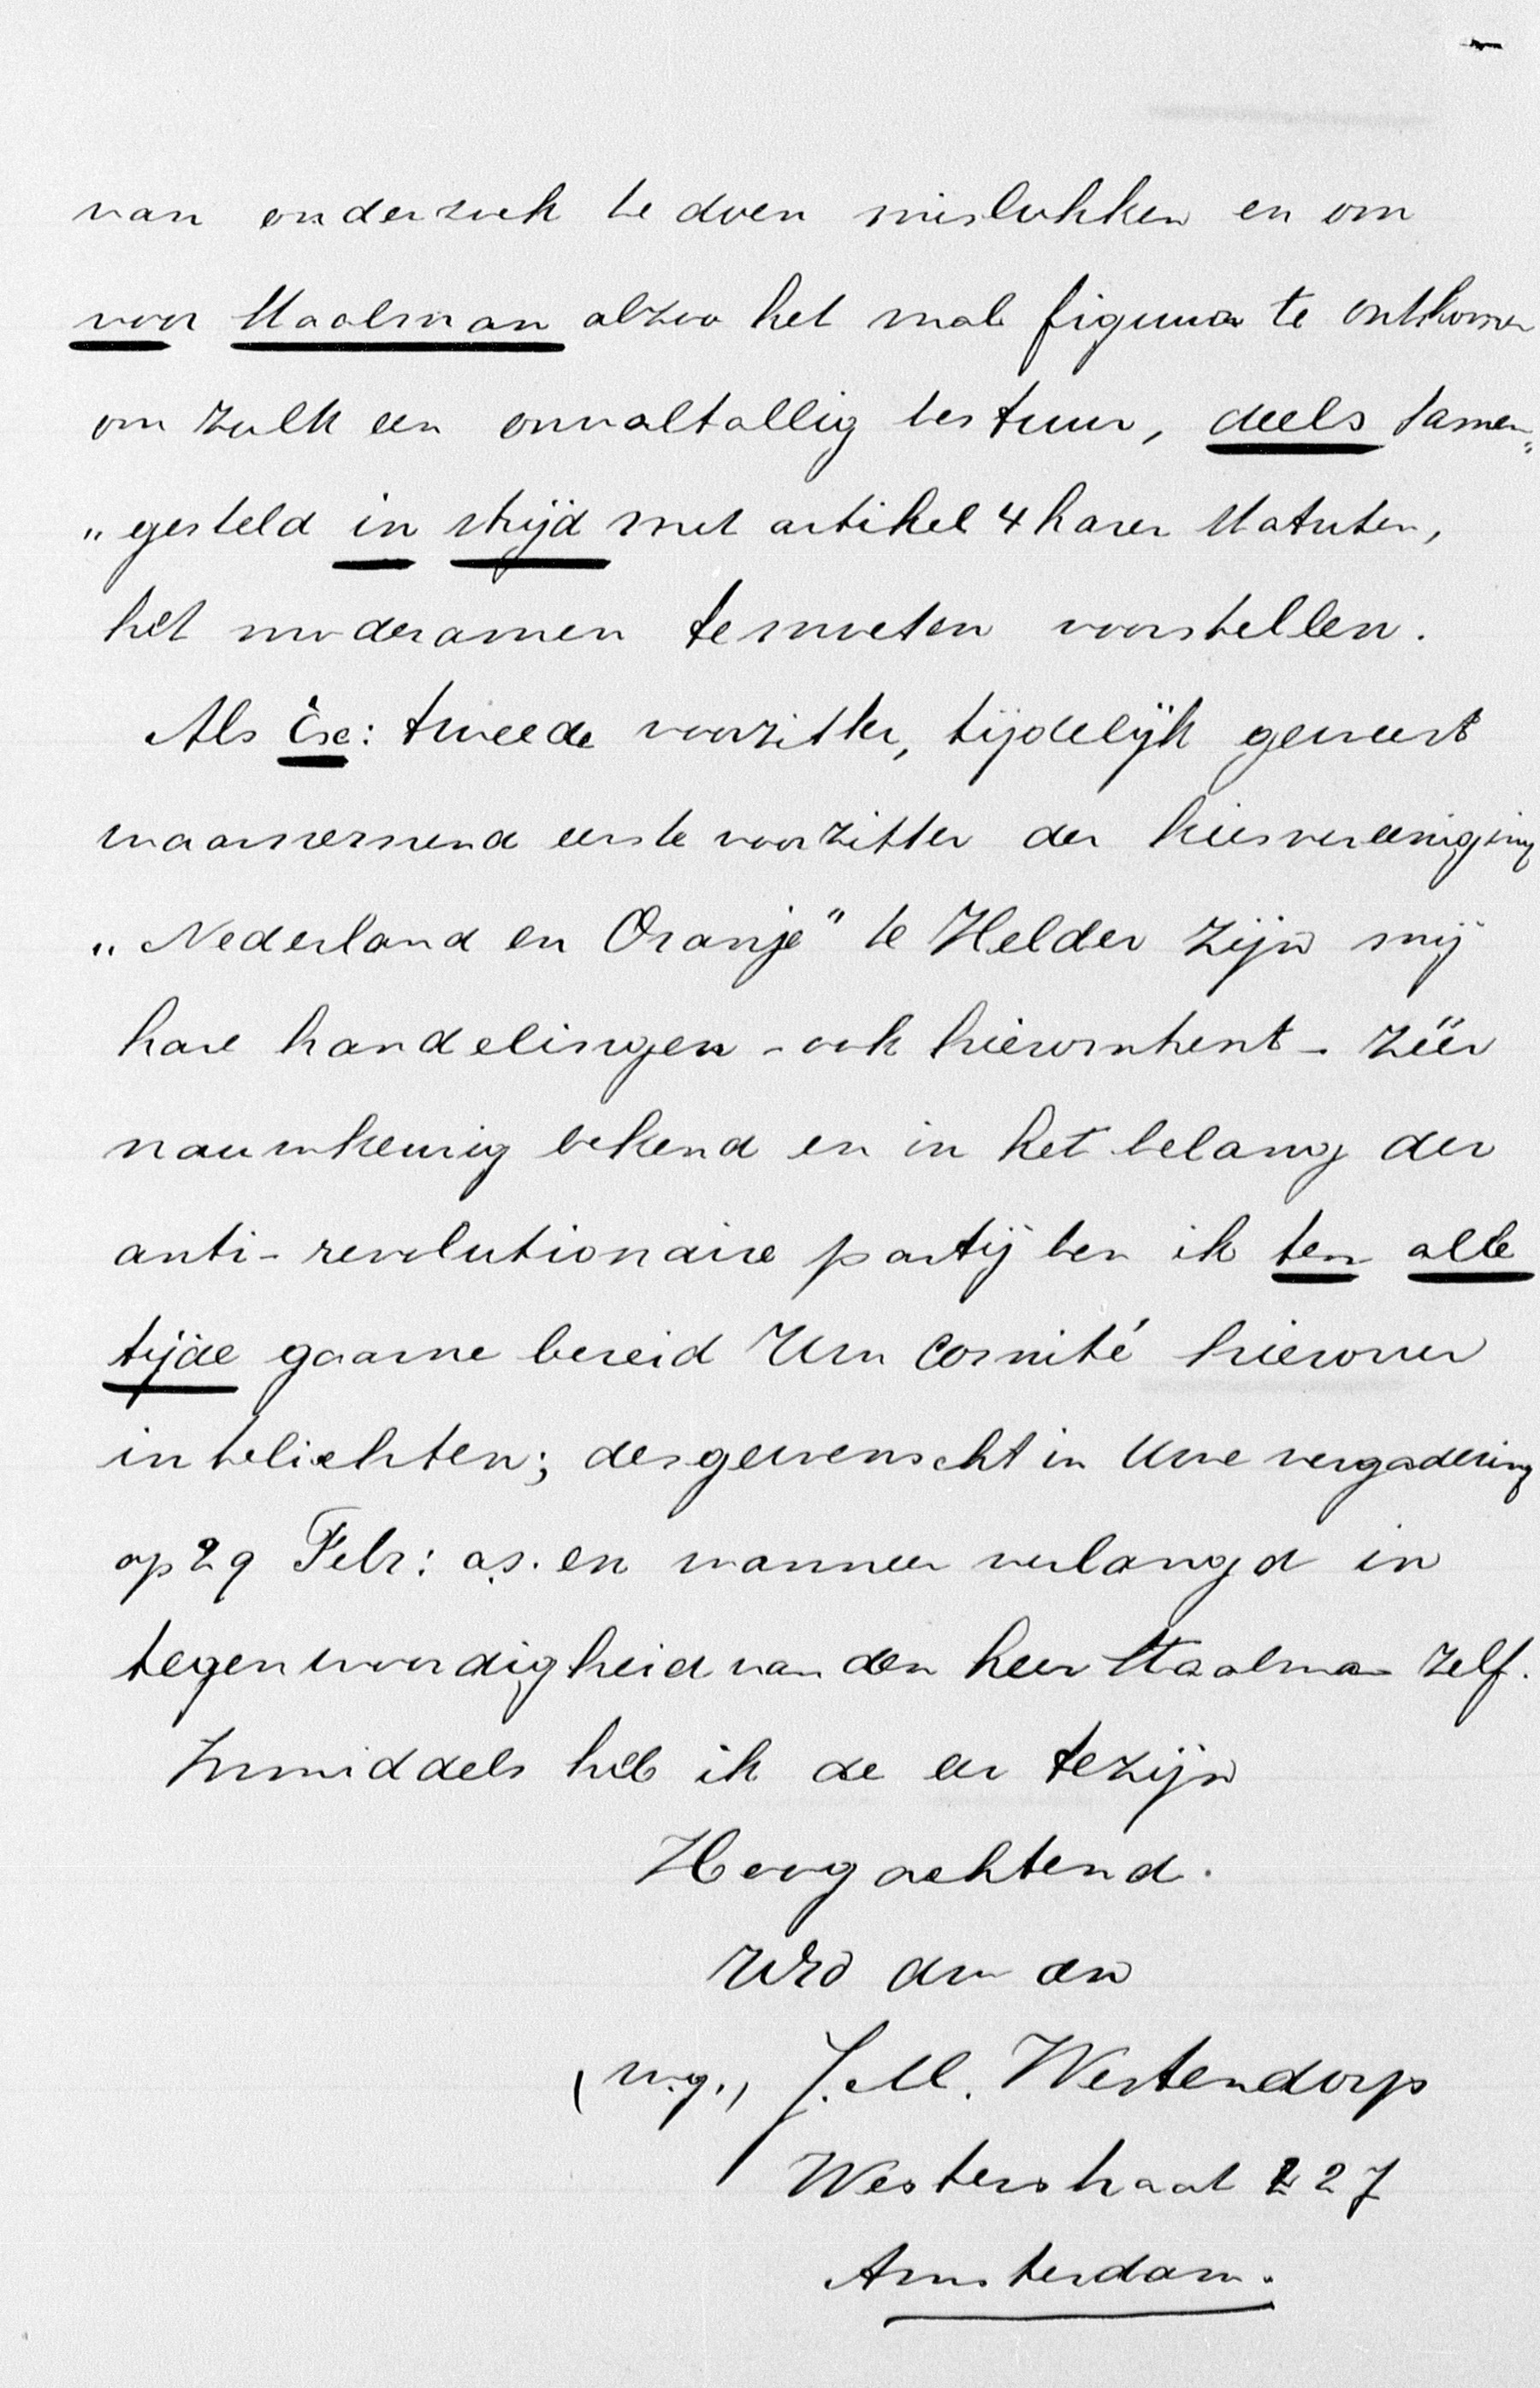 van onderzoek te doen mislukken en om
voor Staalman alzoo het mal figuur te ontkomen
om zulk een onvoltallig bestuur, deels samen„
„gesteld in strijd met artikel 4 harer Statuten,
het moderamen te moeten voorstellen.
Als Ex: tweede voorzitter, tijdelijk geweest
waarnemend eerste voorzitter der kiesvereeniging
„Nederland en Oranje" te Helder zijn mij
hare handelingen - ook hieromtrent - zéér
nauwkeurig bekend en in het belang der
anti-revolutionaire partij ben ik ten alle
tijde gaarne bereid Uw Comité hierover
intelichten; desgewenscht in Uwe vergadering
op 29 Febr: a.s. en wanneer verlangd in
tegenwoordigheid van den heer Staalman zelf.
Inmiddels heb ik de eer te zijn
Hoogachtend.
UEd dw dn
(w.g.) J. M. Westendorp
Westerstraat 227
Amsterdam.